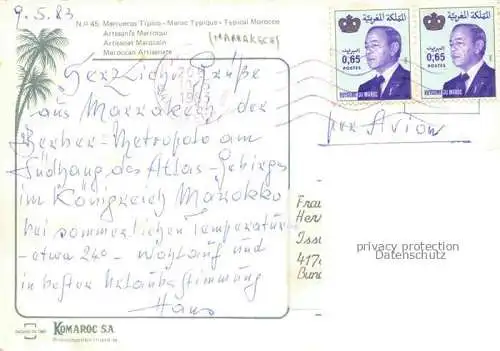 9.5.83
N.º 45 Marruecos Típico - Maroc Typique - Typical Morocco
Artesanía Marroquí
Artisanat Marocain
Moroccan Artisanate
(MARRAKESCH)
Herzliche Grüße
aus Marrakech der
Berber-Metropole am
Südhang des Atlas-Gebirges
im Königreich Marokko
bei sommerlichen Temperaturen
- etwa 24° - wohlauf und
in bester Urlaubsstimmung
Hans
KOMAROC S.A.
المملكة المغربية
البريد
0,65
POSTES
ROYAUME DU MAROC
المملكة المغربية
البريد
0,65
POSTES
ROYAUME DU MAROC
par Avion
Frau
Her
Iss
417
Bun
privacy protection
Datenschutz